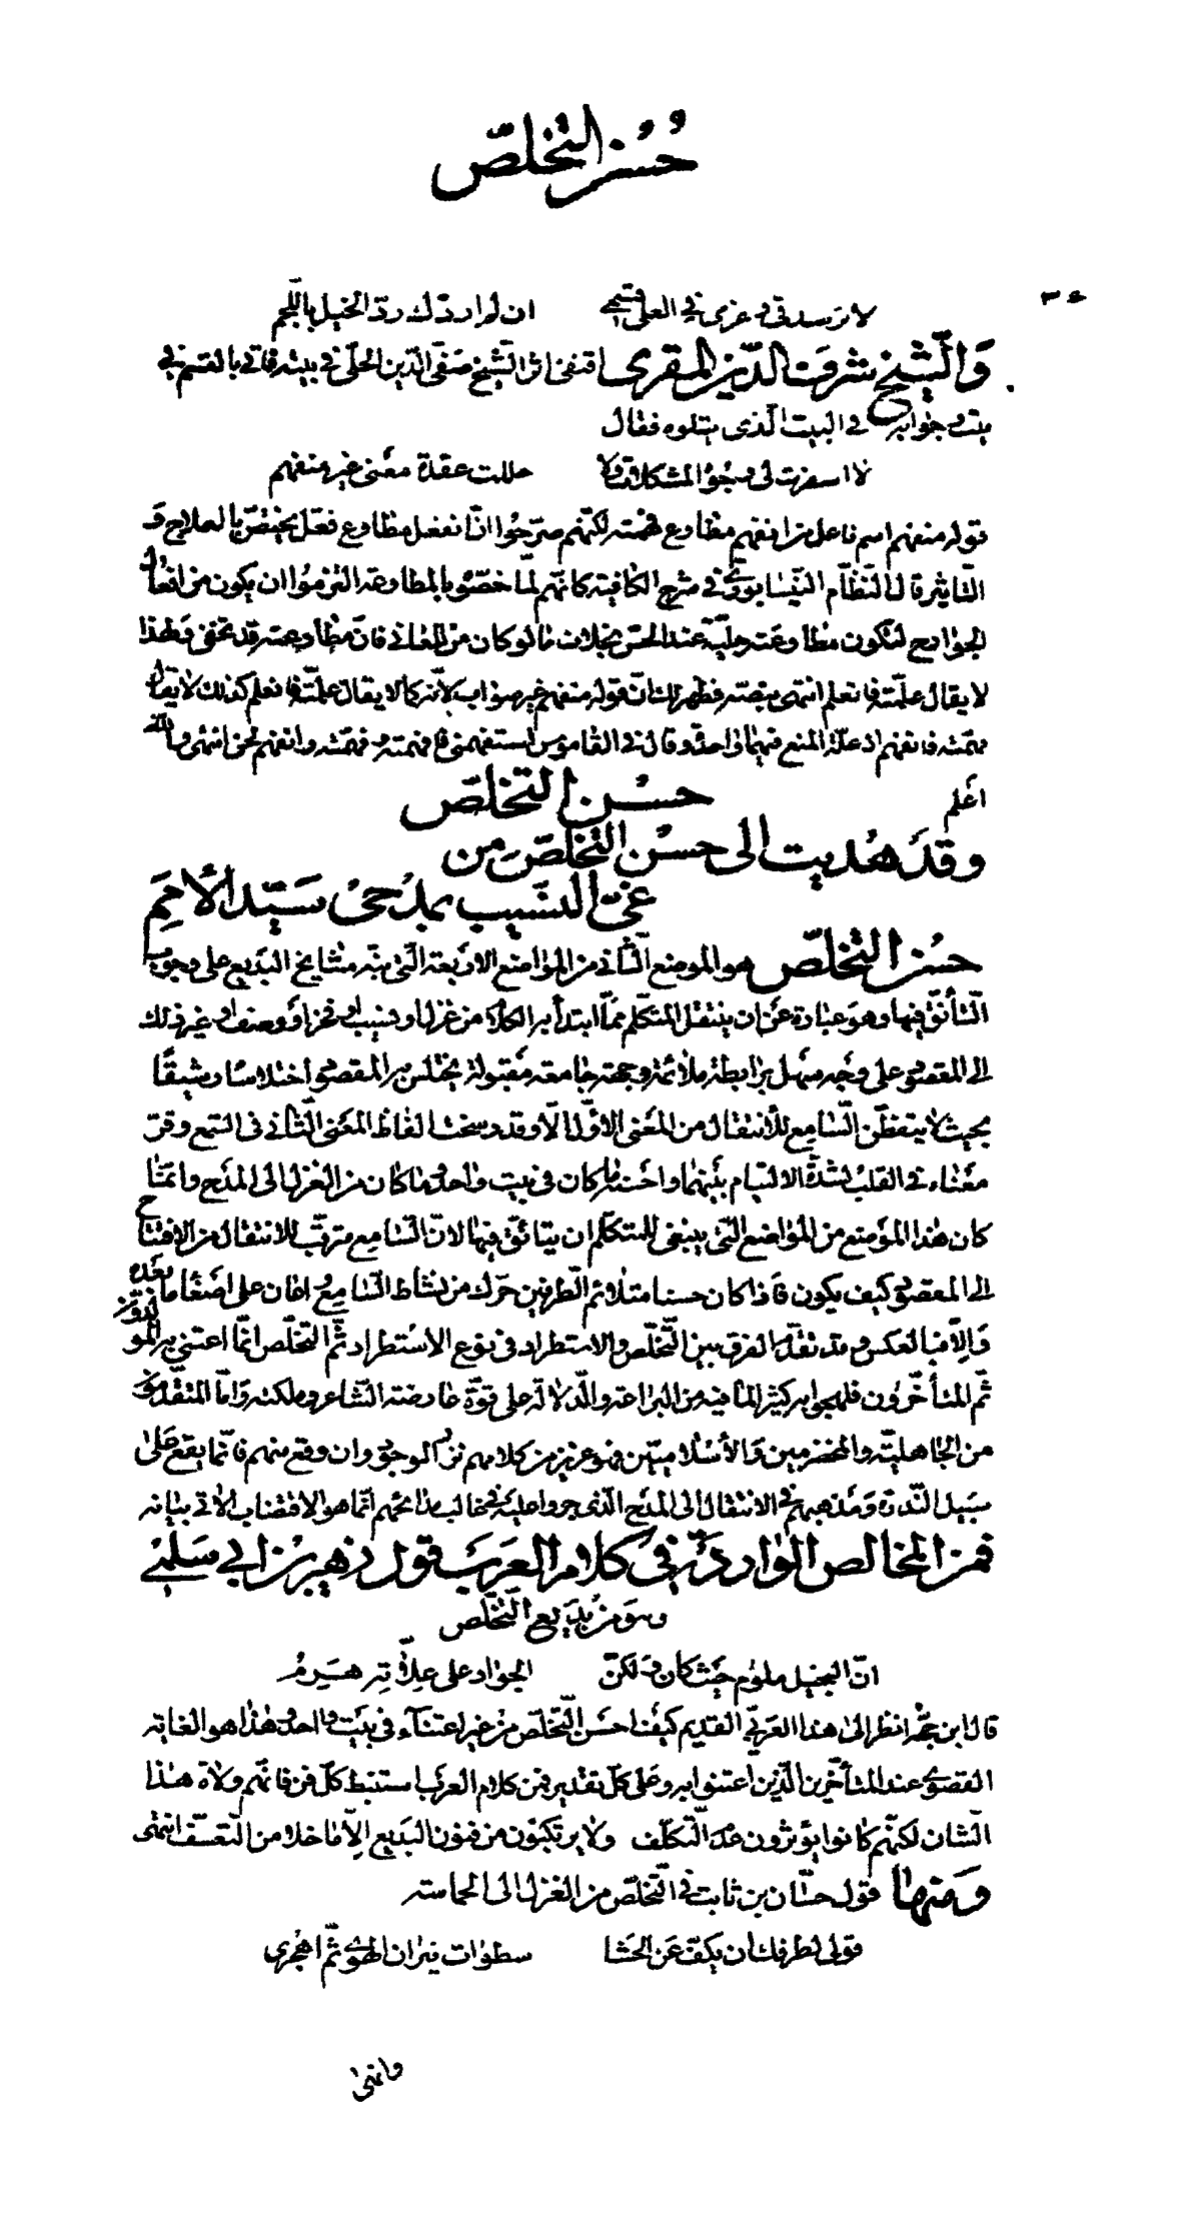 حُسْنُ التَّخَلُّصِ
ان لم اردّك ردّ الخيل باللّجم
وَالشَّيخ شرف الدّين المقري اقتفى اثر الشّيخ صفىّ الدّين الحلّى في بيته فاتى بالقسم في
بيت وجوابه في البيت الّذى يتلوه فقال
لا اسفرت لى وجوه المشكلات ولا حللت عقدة معنى غير منفهم
قوله منفهم اسم فاعل من انفهم مطاوع فهمته لكنّهم صرّحوا انّ انفعل مطاوع فعل يختصّ بالعلاج و
التّاثير قال النّظّام النّيسابورىّ في شرح الشافية كانّهم لمّا خصّوه بالمطاوعة التزموا ان يكون من افعال
الجوارح لتكون مطاوعته جليّة عند الحسّ بخلاف ما لو كان من المعانى فانّ مطاوعته قد تخفى فلهذا
لا يقال علمته فانعلم انتهى بنصّه فظهر لك انّ قوله منفهم غير صواب لانّه كما لا يقال علمته فانعلم كذلك لا يقال
فهمته فانفهم اذ علّة المنع فيهما واحدة وقال في القاموس استفهمنى فافهمته وفهّمته وانفهم لحن انتهى والله
اعلم
حسن التخلّص
وقد هُديت الى حسن التخلّص من
غىّ النسيب بمدحى سَيّد الأمم
حسن التخلّص هو الموضع الثّانى من المواضع الاربعة الّتى نبّه مشايخ البديع على وجوب
التّأنّق فيها وهو عبارة عن ان ينتقل المتكلّم ممّا ابتدأ به الكلام من غزل او نسيب او فخر او وصف او غير ذلك
الى المقصود على وجه سهل برابطة ملائمة وجهة جامعة مقبولة يختلس به المقصود اختلاسا رشيقًا
بحيث لا يتفطّن السّامع للانتقال من المعنى الاوّل الّا وقد رسخت الفاظ المعنى الثّانى في السّمع وقرّ
معناه في القلب لشدّة الالتيام بينهما واحسنه ما كان في بيت واحد وما كان من الغزل الى المدح وانّما
كان هذا الموضع من المواضع الّتى ينبغى للمتكلّم ان يتانّق فيها لانّ السّامع مترقّب للانتقال من الافتتاح
الى المقصود كيف يكون فاذا كان حسنا متلائم الطّرفين حرّك من نشاط السّامع واعان على اصغاء ما بعده
وَالّا فبالعكس وقد تقدّم الفرق بين التّخلّص والاستطراد في نوع الاستطراد ثمّ التّخلّص انّما اعتنى به المولّدون
ثمّ المتأخّرون فلهجوا به كثيرا لما فيه من البراعة والدّلالة على قوّة عارضة الشّاعر وملكته وامّا المتقدّمون
من الجاهليّة والمخضرمين والاسلاميّين فهو عزيز من كلامهم نزر الوجود وان وقع منهم فانّما يقع على
سبيل النّدرة ومذهبهم في الانتقال الى المدح الّذى جروا عليه في غالب مدائحهم انّما هو الاقتضاب الاتى بيانه
فمن المخالص الواردة في كلام العرب قول زهير بن ابى سلمى
وهو من بديع التّخلّص
انّ البخيل ملوم حيث كان ولكنّ الجواد على علّاته هَرِمُ
قال ابن حجّة انظر الى هذا العربىّ القديم كيف احسن التّخلّص من غير اعتناء في بيت واحد وهذا هو الغاية
القصوى عند المتأخّرين الّذين اعتنوا به وعلى كلّ تقدير فمن كلام العرب استنبط كلّ فن فانّهم ولاة هذا
الشّان لكنّهم كانوا يؤثرون عدم التّكلّف ولا يرتكبون من فنون البديع الّا ما خلا من التّعسّف انتهى
ومنها قول حسّان بن ثابت في التّخلّص من الغزل الى الحماسة
قولى لطرفك ان يكفّ عن الحشا سطوات نيران الهوى ثمّ اهجرى
وانهى